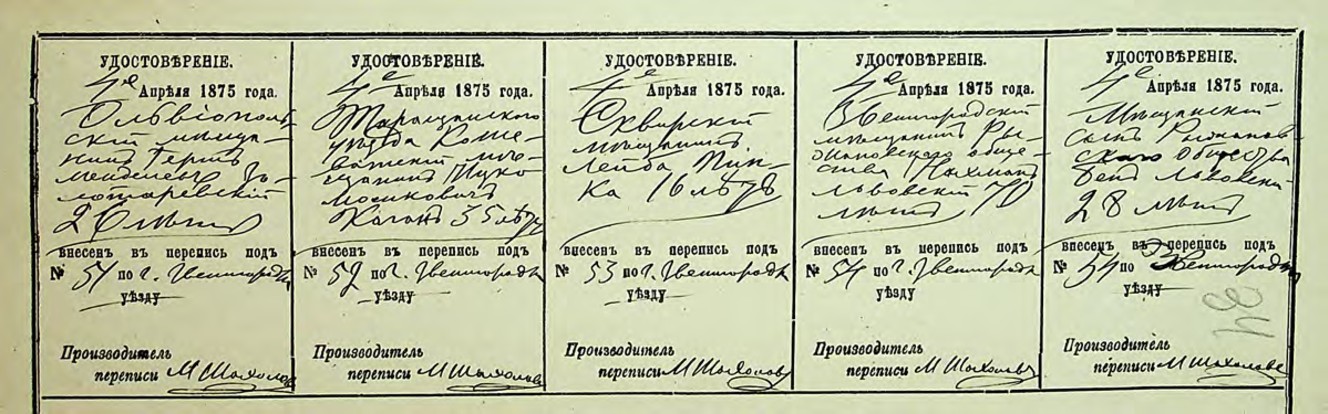 УДОСТОВѢРЕНІЕ.
4е Апрѣля 1875 года.
Ольвіополь-
скій мѣща-
нинъ Гершъ
Менделевъ Зо-
лотаревскій
26 лѣтъ
внесенъ въ перепись подъ
№ 51 по г. Звенигородкѣ
уѣзду
Производитель
переписи М Шахолов
УДОСТОВѢРЕНІЕ.
4е Апрѣля 1875 года.
Таращанскаго
уѣзда Коше-
ватскій мѣ-
щанинъ Ицко
Мошковичъ
Каганъ 35 лѣтъ
внесенъ въ перепись подъ
№ 52 по г. Звенигородкѣ
уѣзду
Производитель
переписи М Шахолов
УДОСТОВѢРЕНІЕ.
4е Апрѣля 1875 года.
Сквирскій
мѣщанинъ
Лейба Пин-
ка 16 лѣтъ
внесенъ въ перепись подъ
№ 53 по г. Звенигородкѣ
уѣзду
Производитель
переписи М Шахолов
УДОСТОВѢРЕНІЕ.
4е Апрѣля 1875 года.
Звенигородскій
мѣщанинъ Ры-
жановскаго обще-
ства Нахманъ
Львовскій 70
лѣтъ
внесенъ въ перепись подъ
№ 54 по г. Звенигородкѣ
уѣзду
Производитель
переписи М Шахолов
УДОСТОВѢРЕНІЕ.
4е Апрѣля 1875 года.
Мѣщанскій
сынъ Рыжанов-
скаго Общества
Львовскій
28 лѣтъ
внесенъ въ перепись подъ
№ 54 по Звенигородкѣ
уѣзду
34
Производитель
переписи М Шахолов